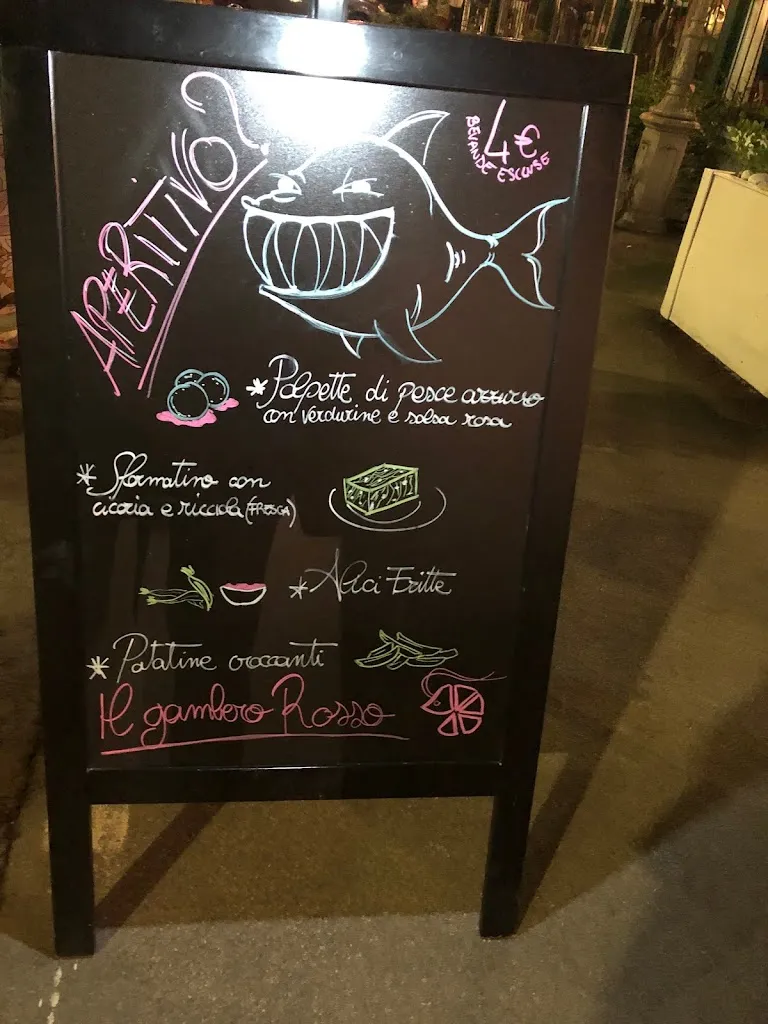 APERITIVO?
4€
BEVANDE ESCLUSE
* Polpette di pesce azzurro
con verdurine e salsa rosa
* Sformatino con
cicoria e ricciola (FRESCA)
* Alici Fritte
* Patatine croccanti
Il gambero Rosso